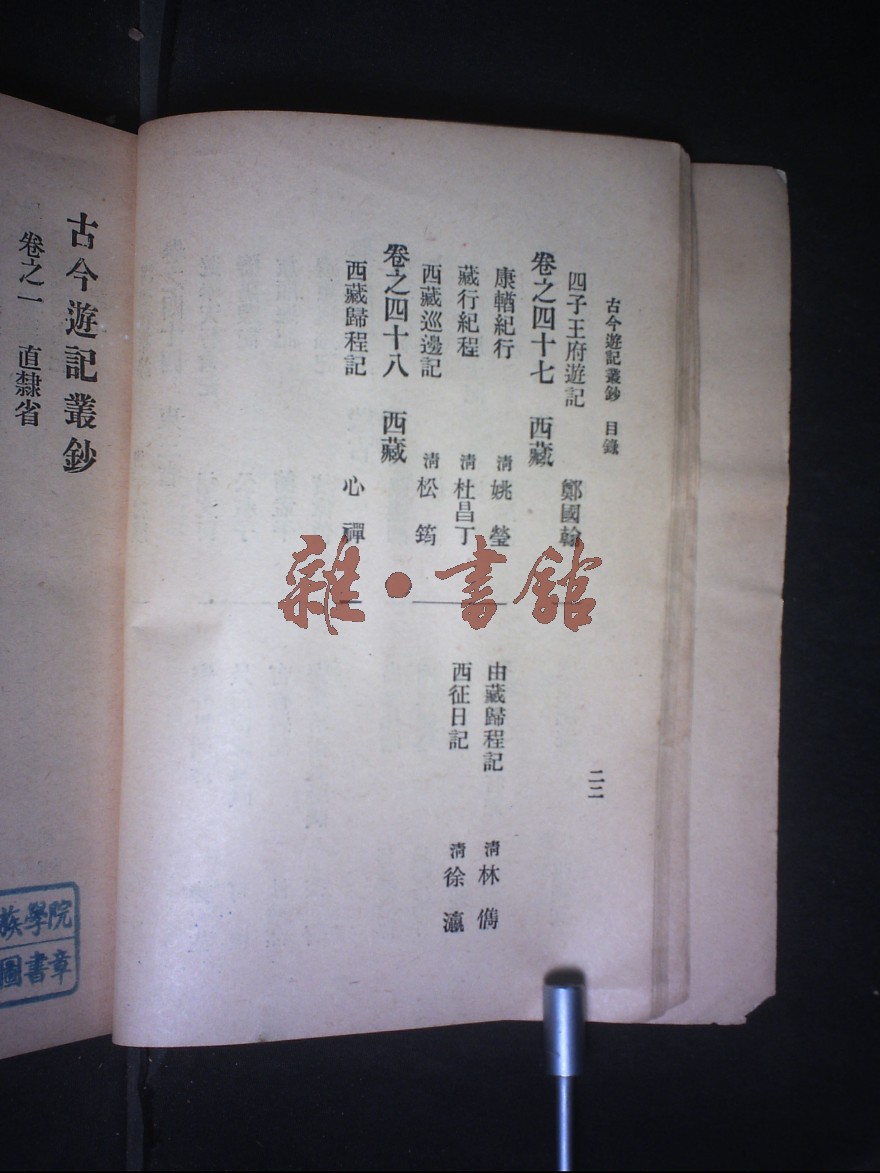 古今遊記叢鈔 目錄
二二
四子王府遊記 鄭國翰
卷之四十七 西藏
康輶紀行 清 姚瑩
由藏歸程記 清 林儁
藏行紀程 清 杜昌丁
西征日記 清 徐瀛
西藏巡邊記 清 松筠
卷之四十八 西藏
西藏歸程記 心禪
古今遊記叢鈔
卷之一 直隸省
族學院
圖書章
雜·書館